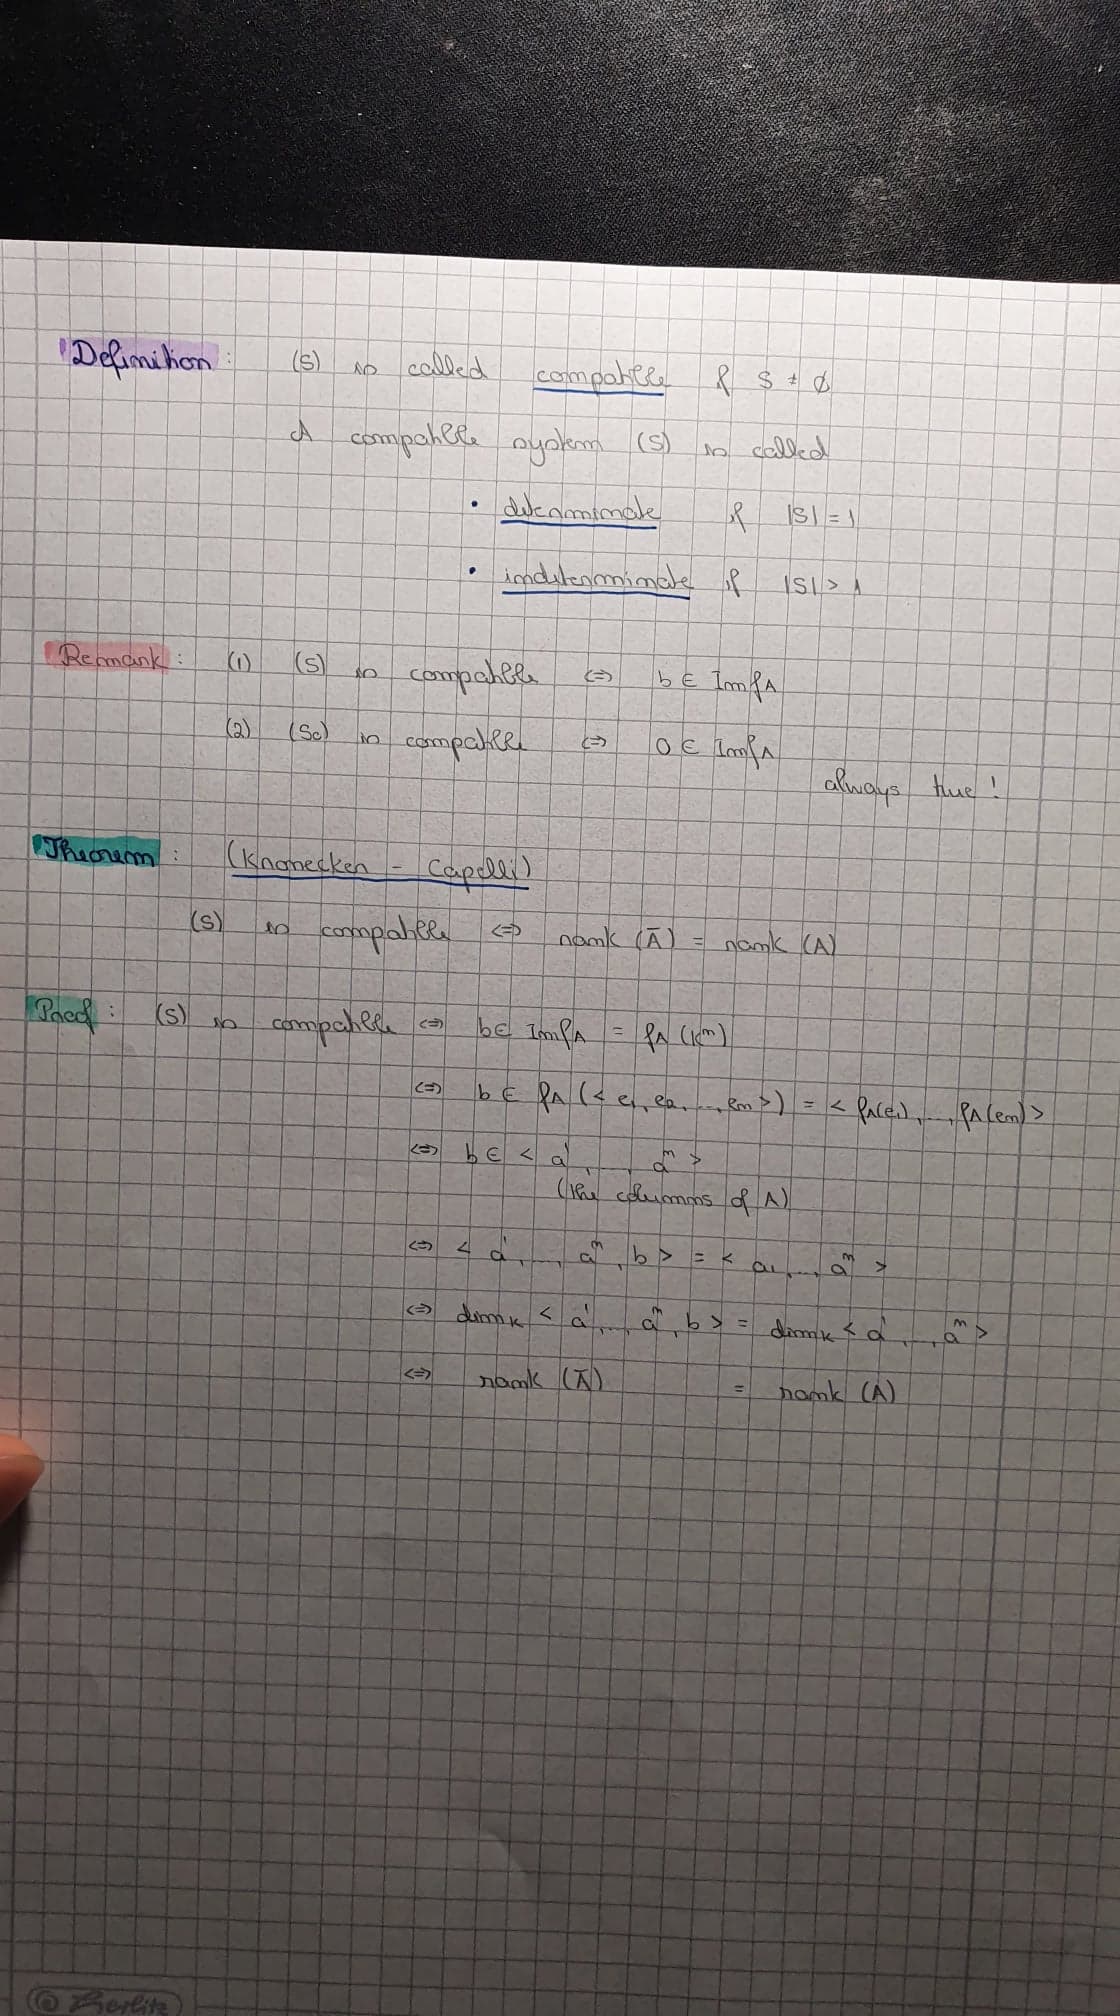 Definition : (S) is called compatible if S ≠ ∅
A compatible system (S) is called
• determinate if |S| = 1
• indeterminate if |S| > 1
Remark : (1) (S) is compatible <=> b ∈ Im f_A
(2) (S₀) is compatible <=> 0 ∈ Im f_A
always true!
Theorem : (Kronecker - Capelli)
(S) is compatible <=> rank (Ā) = rank (A)
Proof : (S) is compatible <=> b ∈ Im f_A = f_A (Kⁿ)
<=> b ∈ f_A (< e₁, e₂, ..., eₙ >) = < f_A(e₁), ..., f_A(eₙ) >
<=> b ∈ < a¹, ..., aⁿ >
(the columns of A)
<=> < a¹, ..., aⁿ, b > = < a₁, ..., aⁿ >
<=> dim_K < a¹, ..., aⁿ, b > = dim_K < a¹, ..., aⁿ >
<=> rank (Ā) = rank (A)
© Berlitz